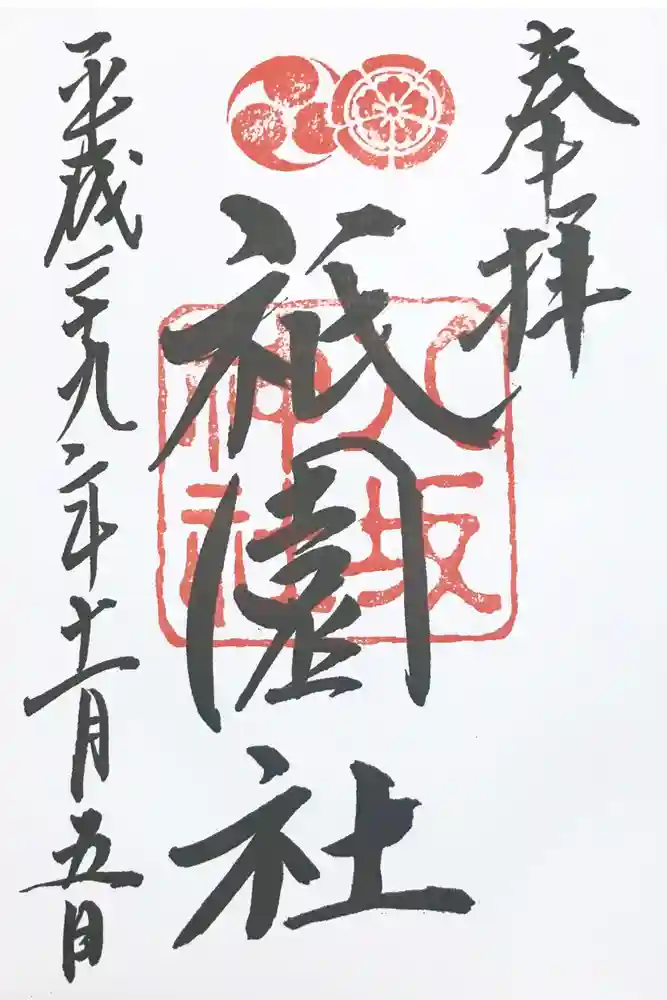 奉拝
祇園社
八坂
神社
平成二十九年十一月五日